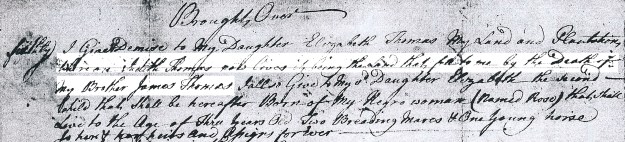 Broughty Over
fifthly I Give & Demise to My Daughter Elizabeth Thomas My Land and Plantation
Wherein Judith Thomas now lives it being the Land that fell to me by the Death of
My Brother James Thomas I also Give to My sd Daughter Elizabeth the second
Child that Shall be hereafter Born of My Negro woman (Named Rose) that shall
live to the Age of Two years Old Two Breeding Mares & One Young horse
to her & her heirs and Assigns for ever